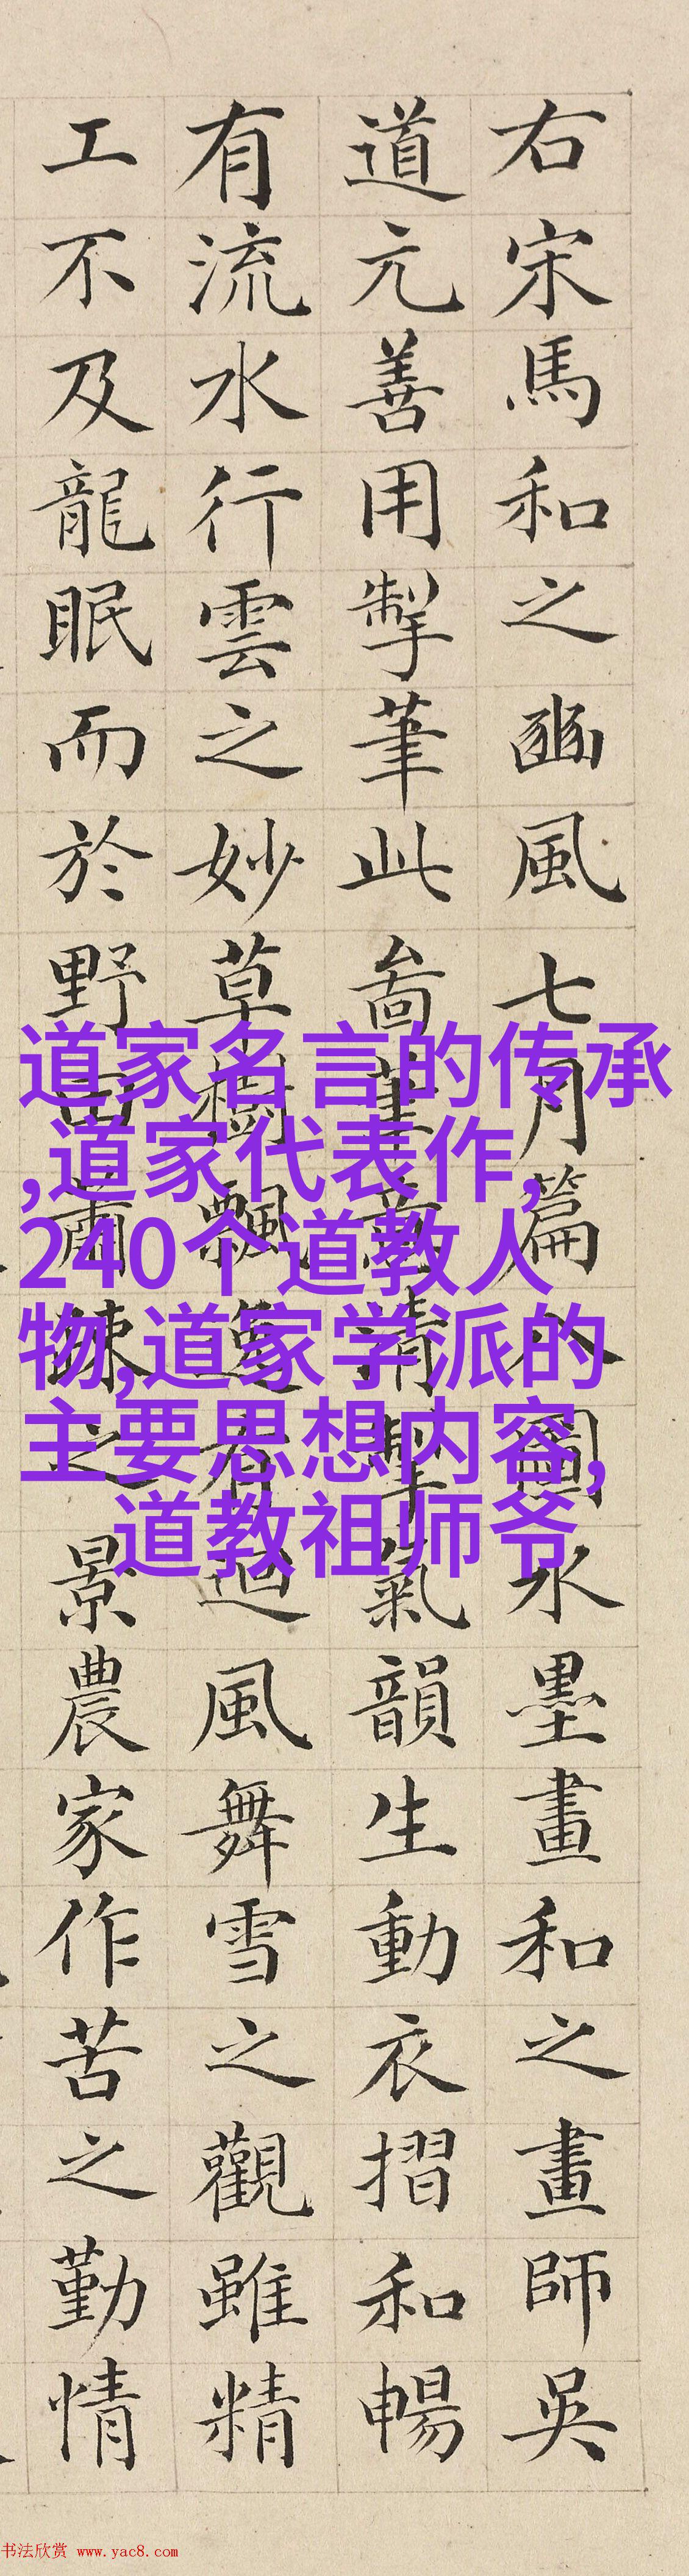 右宋馬和之豳風七月篇八圖水墨畫和之畫師吳
道元善用掣筆此啚筆清掣氣韻生動衣摺和暢
有流水行雲之妙草樹飄逸有迴風舞雪之觀雖精
工不及龍眠而於野田蕭疎之景農家作苦之勤情
道家名言的传承
,道家代表作,
240个道教人
物,道家学派的
主要思想内容,
道教祖师爷
书法欣赏 www.yac8.com